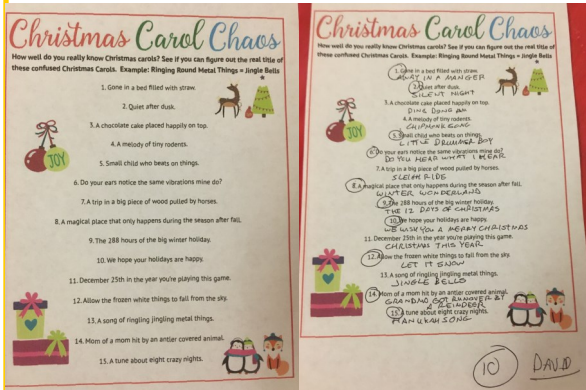 Christmas Carol Chaos
How well do you really know Christmas carols? See if you can figure out the real title of
these confused Christmas Carols. Example: Ringing Round Metal Things = Jingle Bells
1. Gone in a bed filled with straw.
2. Quiet after dusk.
3. A chocolate cake placed happily on top.
4. A melody of tiny rodents.
5. Small child who beats on things.
6. Do your ears notice the same vibrations mine do?
7. A trip in a big piece of wood pulled by horses.
8. A magical place that only happens during the season after fall.
9. The 288 hours of the big winter holiday.
10. We hope your holidays are happy.
11. December 25th in the year you're playing this game.
12. Allow the frozen white things to fall from the sky.
13. A song of ringling jingling metal things.
14. Mom of a mom hit by an antler covered animal.
15. A tune about eight crazy nights.
JOY
Christmas Carol Chaos
How well do you really know Christmas carols? See if you can figure out the real title of
these confused Christmas Carols. Example: Ringing Round Metal Things = Jingle Bells
1. Gone in a bed filled with straw.
AWAY IN A MANGER
2. Quiet after dusk.
SILENT NIGHT
3. A chocolate cake placed happily on top.
DING DONG
4. A melody of tiny rodents.
CHIPMONK SONG
5. Small child who beats on things.
LITTLE DRUMMER BOY
6. Do your ears notice the same vibrations mine do?
DO YOU HEAR WHAT I HEAR
7. A trip in a big piece of wood pulled by horses.
SLEIGH RIDE
8. A magical place that only happens during the season after fall.
WINTER WONDERLAND
9. The 288 hours of the big winter holiday.
THE 12 DAYS OF CHRISTMAS
10. We hope your holidays are happy.
WE WISH YOU A MERRY CHRISTMAS
11. December 25th in the year you're playing this game.
CHRISTMAS THIS YEAR
12. Allow the frozen white things to fall from the sky.
LET IT SNOW
13. A song of ringling jingling metal things.
JINGLE BELLS
14. Mom of a mom hit by an antler covered animal.
GRANDMA GOT RUNOVER BY
A REINDEER
15. A tune about eight crazy nights.
HANUKAH SONG
JOY
10 DAVID